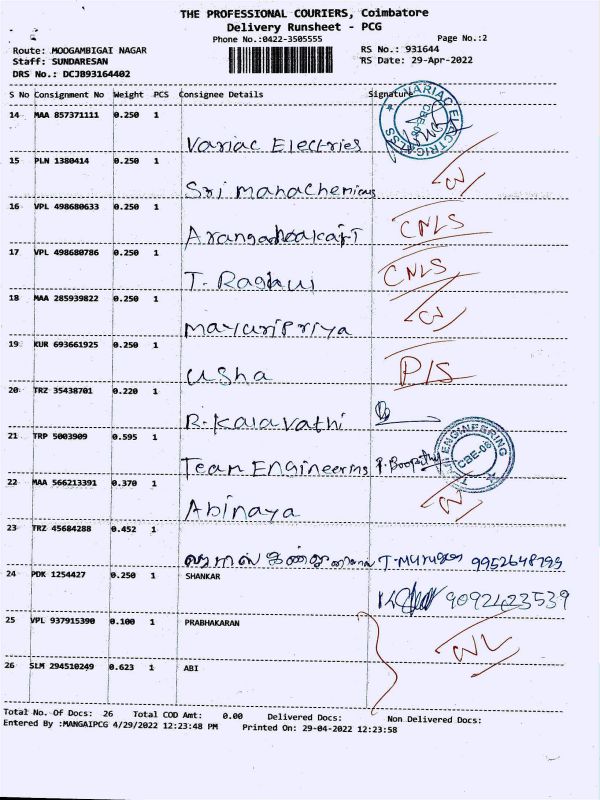 THE PROFESSIONAL COURIERS, Coimbatore
Delivery Runsheet - PCG
Phone No.:0422-3505555 Page No.:2
Route: MOOGAMBIGAI NAGAR RS No.: 931644
Staff: SUNDARESAN RS Date: 29-Apr-2022
DRS No.: DCJB93164402
S No Consignment No Weight PCS Consignee Details Signature
14 MAA 857371111 0.250 1
Variac Electries
VARIAC ELECTRICALS CBE-06
15 PLN 1380414 0.250 1
Sri Mahachemicus
16 VPL 498680633 0.250 1
CNLS
17 VPL 498680786 0.250 1
T. Raghui CNLS
18 MAA 285939822 0.250 1
MayuriPriya
19 KUR 693661925 0.250 1
Usha P/S
20 TRZ 35438701 0.220 1
R. Kalavathi
21 TRP 5003909 0.595 1
Team Engineerms P. Boopathy
ENGINEERING CBE-06
22 MAA 566213391 0.370 1
Abinaya
23 TRZ 45684288 0.452 1
T-Murugan 9952648799
24 PDK 1254427 0.250 1 SHANKAR
9092423539
25 VPL 937915390 0.100 1 PRABHAKARAN
26 SLM 294510249 0.623 1 ABI
Total No. Of Docs: 26 Total COD Amt: 0.00 Delivered Docs: Non Delivered Docs:
Entered By :MANGAIPCG 4/29/2022 12:23:48 PM Printed On: 29-04-2022 12:23:58